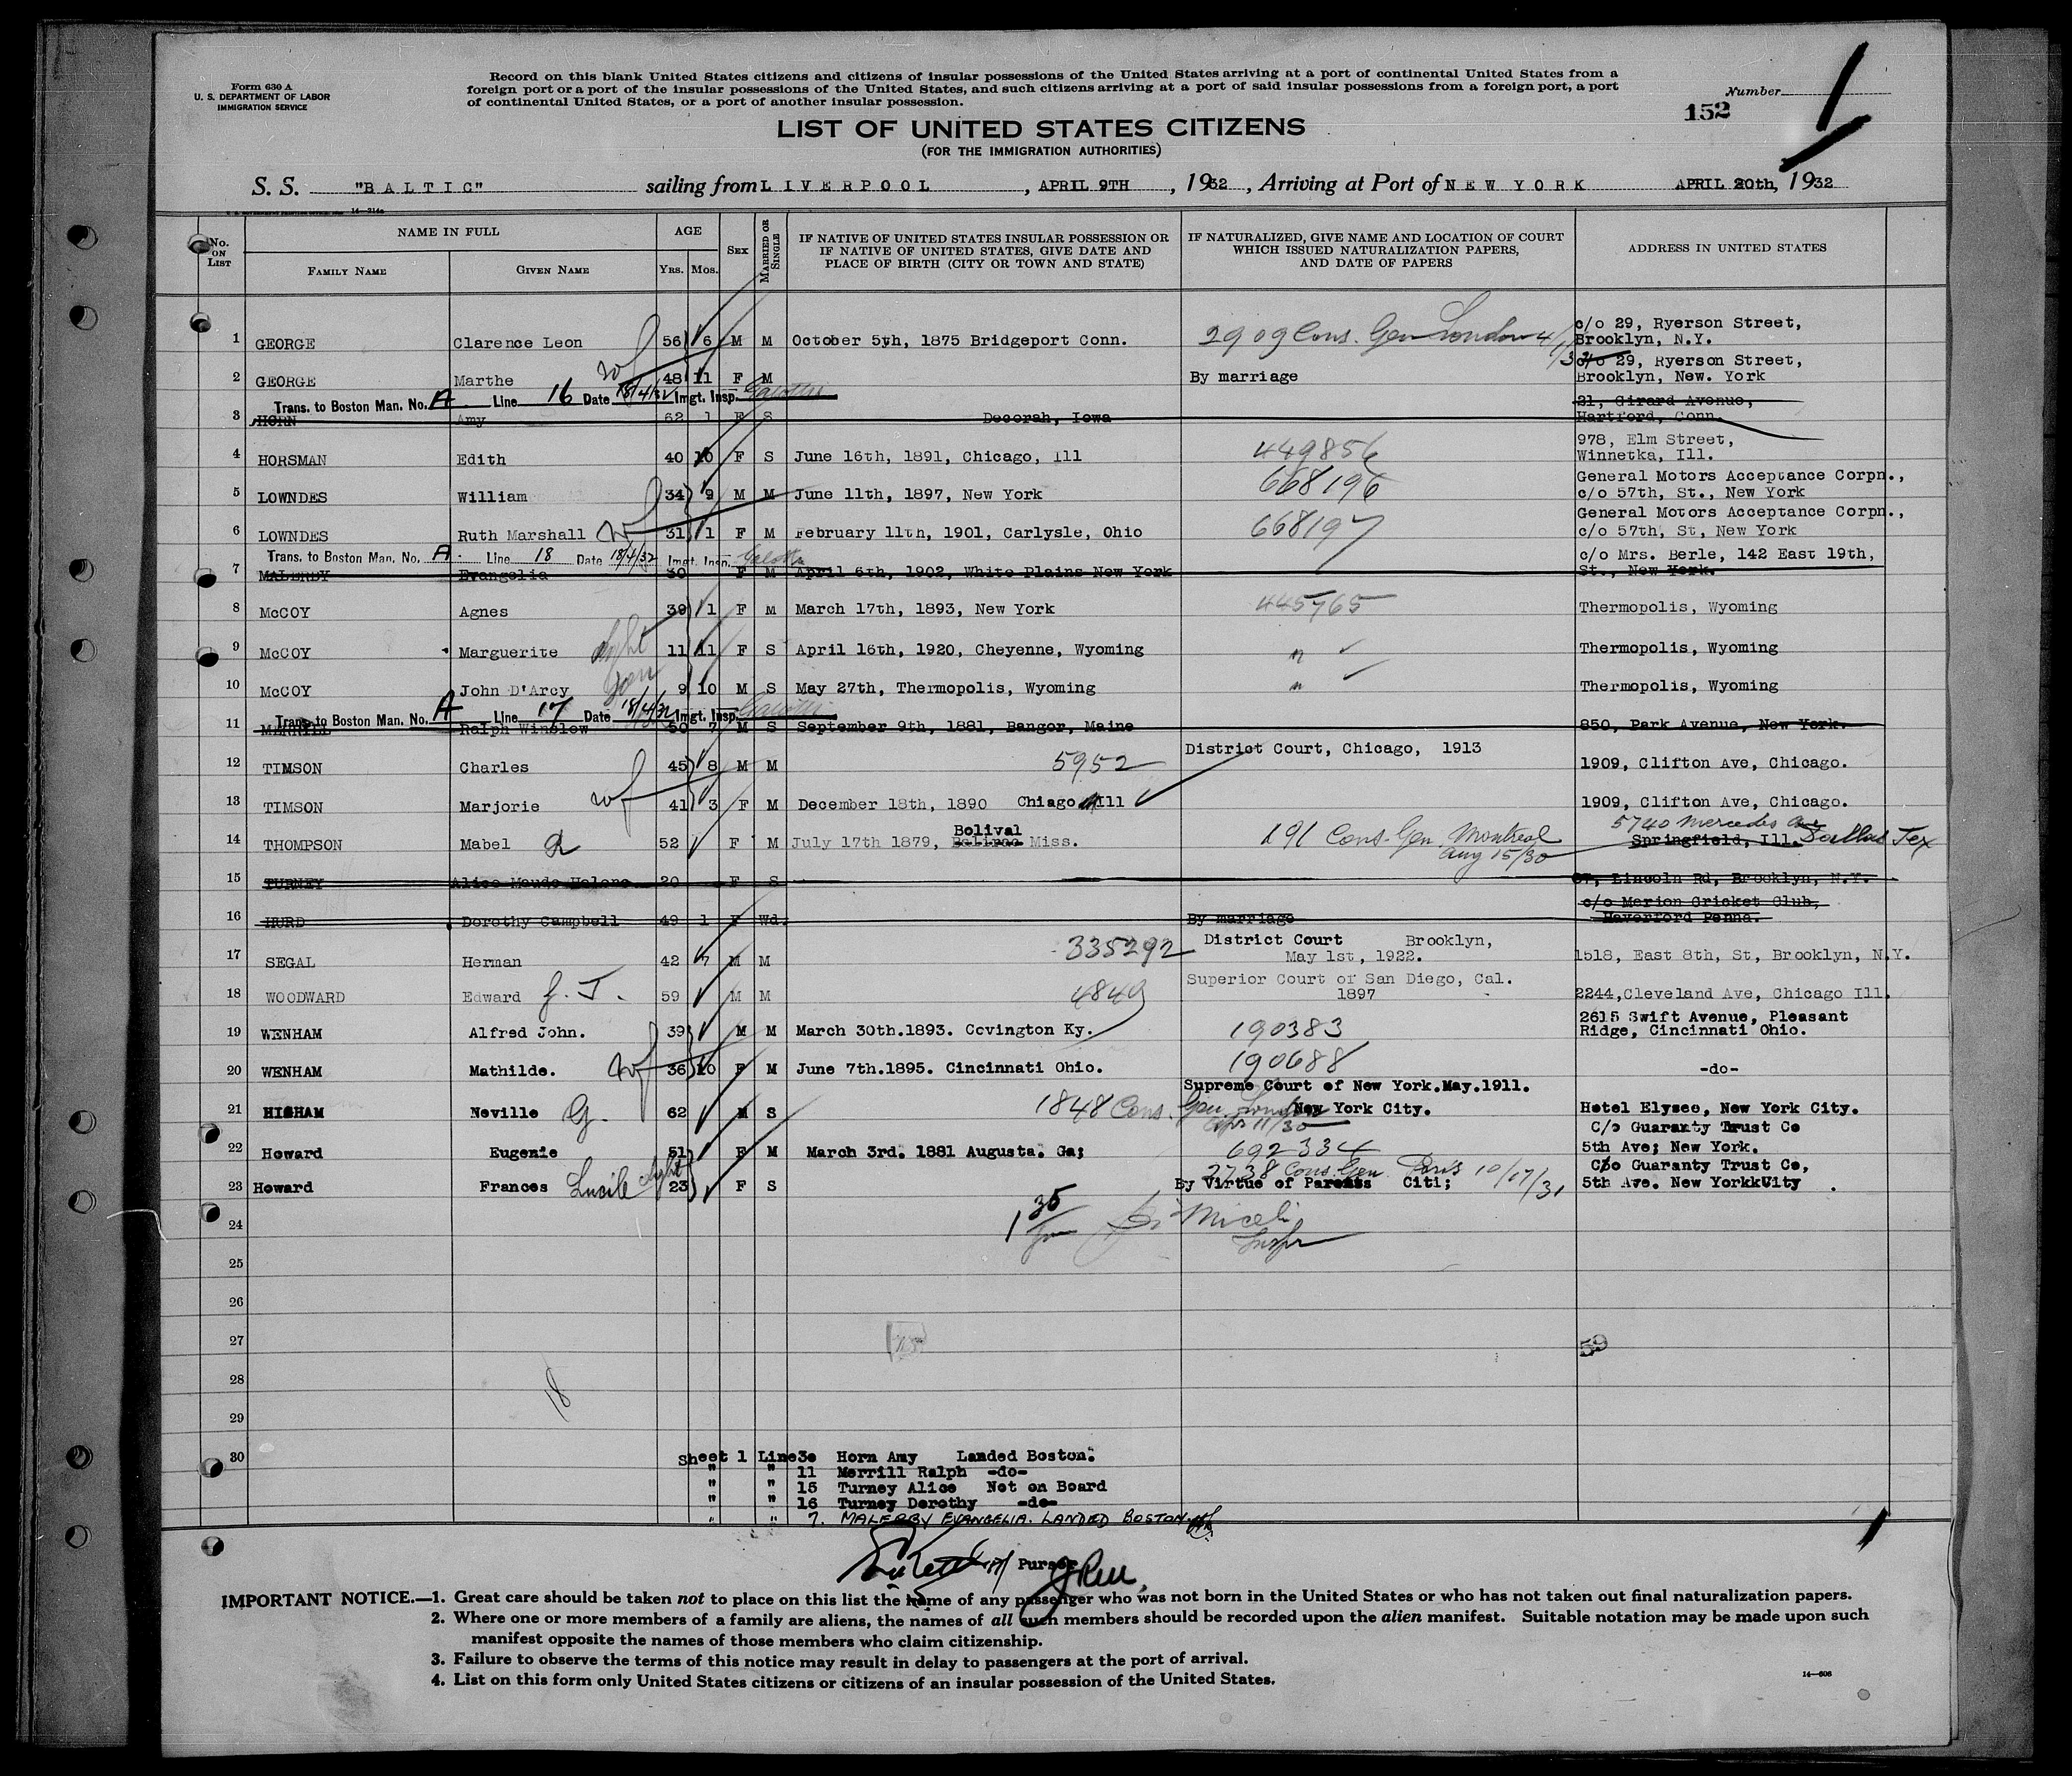 Form 630 A
U. S. DEPARTMENT OF LABOR
IMMIGRATION SERVICE
Record on this blank United States citizens and citizens of insular possessions of the United States arriving at a port of continental United States from a
foreign port or a port of the insular possessions of the United States, and such citizens arriving at a port of said insular possessions from a foreign port, a port
of continental United States, or a port of another insular possession.
Number 1
152
LIST OF UNITED STATES CITIZENS
(FOR THE IMMIGRATION AUTHORITIES)
S. S. "BALTIC" sailing from LIVERPOOL, APRIL 9TH, 1932, Arriving at Port of NEW YORK APRIL 20th, 1932
No. ON LIST
NAME IN FULL
FAMILY NAME
GIVEN NAME
AGE
YRS. MOS.
SEX
MARRIED OR SINGLE
IF NATIVE OF UNITED STATES INSULAR POSSESSION OR
IF NATIVE OF UNITED STATES, GIVE DATE AND
PLACE OF BIRTH (CITY OR TOWN AND STATE)
IF NATURALIZED, GIVE NAME AND LOCATION OF COURT
WHICH ISSUED NATURALIZATION PAPERS,
AND DATE OF PAPERS
ADDRESS IN UNITED STATES
1 GEORGE Clarence Leon 56 6 M M October 5th, 1875 Bridgeport Conn. 2909 Cons. Gen London c/o 29, Ryerson Street,
Brooklyn, N.Y.
2 GEORGE Marthe wf 48 11 F M By marriage c/o 29, Ryerson Street,
Brooklyn, New. York
Trans. to Boston Man. No. A Line 16 Date 18/4/32 Imgt. Insp.
3 HORN Amy 62 1 F S Decorah, Iowa 21, Girard Avenue,
Hartford, Conn.
4 HORSMAN Edith 40 10 F S June 16th, 1891, Chicago, Ill 449856 978, Elm Street,
Winnetka, Ill.
5 LOWNDES William 34 9 M M June 11th, 1897, New York 668196 General Motors Acceptance Corpn.,
c/o 57th, St., New York
6 LOWNDES Ruth Marshall wf 31 1 F M February 11th, 1901, Carlysle, Ohio 668197 General Motors Acceptance Corpn.,
c/o 57th, St, New York
Trans. to Boston Man. No. A Line 18 Date 18/4/32 Imgt. Insp.
7 MALERBY Evangelia 30 F M April 6th, 1902, White Plains New York c/o Mrs. Berle, 142 East 19th,
St., New York.
8 McCOY Agnes 39 1 F M March 17th, 1893, New York 445765 Thermopolis, Wyoming
9 McCOY Marguerite 11 11 F S April 16th, 1920, Cheyenne, Wyoming " Thermopolis, Wyoming
10 McCOY John D'Arcy 9 10 M S May 27th, Thermopolis, Wyoming " Thermopolis, Wyoming
Trans. to Boston Man. No. A Line 17 Date 18/4/32 Imgt. Insp.
11 MERRILL Ralph Winslow 50 7 M S September 9th, 1881, Bangor, Maine 850, Park Avenue, New York.
12 TIMSON Charles 45 8 M M 5952 District Court, Chicago, 1913 1909, Clifton Ave, Chicago.
13 TIMSON Marjorie wf 41 3 F M December 18th, 1890 Chiago Ill 1909, Clifton Ave, Chicago.
14 THOMPSON Mabel 52 F M July 17th 1879, Bolival Miss. 191 Cons. Gen. Montreal
Aug 15/30 5740 Mercedes Ave
Springfield, Ill. Dallas Tex
15 TURNEY Alice Maude Helene 20 F S 67, Lincoln Rd, Brooklyn, N.Y.
16 HURD Dorothy Campbell 49 1 F Wd. By marriage c/o Merion Cricket Club,
Haverford Penna.
17 SEGAL Herman 42 7 M M 335292 District Court Brooklyn,
May 1st, 1922. 1518, East 8th, St, Brooklyn, N.Y.
18 WOODWARD Edward J. T. 59 M M 4849 Superior Court of San Diego, Cal.
1897 2244, Cleveland Ave, Chicago Ill.
19 WENHAM Alfred John. 39 M M March 30th.1893. Covington Ky. 190383 2615 Swift Avenue, Pleasant
Ridge, Cincinnati Ohio.
20 WENHAM Mathilde. wf 36 10 F M June 7th.1895. Cincinnati Ohio. 190688 -do-
21 HIGHAM Neville G. 62 M S 1848 Cons. Gen. London Supreme Court of New York.May.1911.
New York City. Hotel Elysee, New York City.
22 Howard Eugenie 51 F M March 3rd. 1881 Augusta. Ga; 692334 C/o Guaranty Trust Co
5th Ave; New York.
23 Howard Frances Lucile 23 F S 2738 Cons. Gen Paris 10/17/31
By Virtue of Parents Citi; C/o Guaranty Trust Co,
5th Ave. New YorkkUity .
24 Miceli
Inspr
25
26
27
59
28
18
29
30
Sheet 1 Line 3e Horn Amy Landed Boston.
" " 11 Merrill Ralph -do-
" " 15 Turney Alice Not on Board
" " 16 Turney Dorothy -do-
" " 7. MALERBY EVANGELIA. LANDED BOSTON.
Purser
IMPORTANT NOTICE.—1. Great care should be taken not to place on this list the name of any passenger who was not born in the United States or who has not taken out final naturalization papers.
2. Where one or more members of a family are aliens, the names of all such members should be recorded upon the alien manifest. Suitable notation may be made upon such
manifest opposite the names of those members who claim citizenship.
3. Failure to observe the terms of this notice may result in delay to passengers at the port of arrival.
4. List on this form only United States citizens or citizens of an insular possession of the United States.
14—608